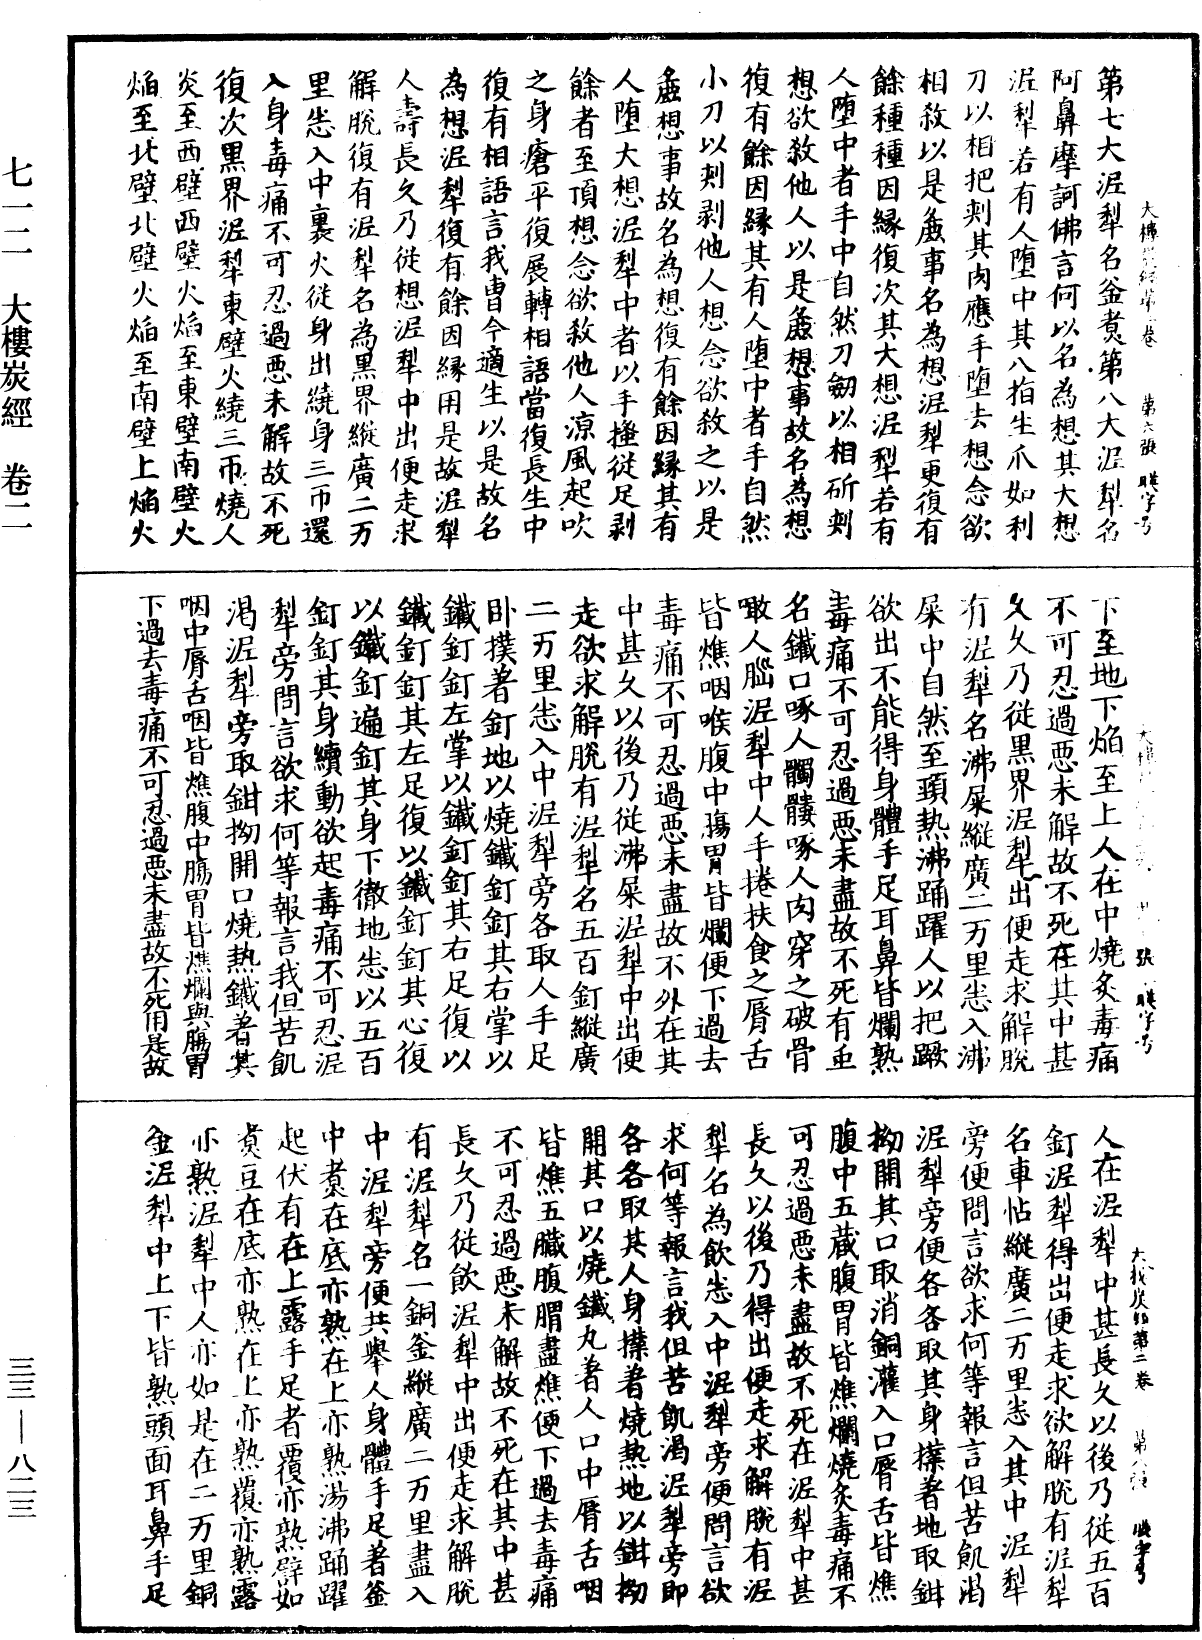 七一二　大樓炭經　卷二
第七大泥犁名釜煮第八大泥犁名
阿鼻摩訶佛言何以名為想其大想
泥犁若有人堕中其八指生爪如利
刀以相把刾其肉應手堕去想念欲
相敎以是䖏事名為想泥犁更復有
餘種種因縁復次其大想泥犁若有
人堕中者手中自然刀劒以相斫刾
想欲敎他人以是䖏想事故名為想
復有餘因縁其有人堕中者手自然
小刀以刾剥他人想念欲敎之以是
䖏想事故名為想復有餘因縁其有
人堕大想泥犁中者以手搔從足剥
餘者至頂想念欲敎他人涼風起吹
之身瘡平復展轉相語當復長生中
復有相語言我曹今適生以是故名
為想泥犁復有餘因縁用是故泥犁
人壽長久乃從想泥犁中出便走求
解脫復有泥犁名為黒界縱廣二万
里悉入中裏火從身出繞身三帀還
入身毒痛不可忍過悪未解故不死
復次黒界泥犁東壁火繞三帀燒人
炎至西壁西壁火焔至東壁南壁火
焔至北壁北壁火焔至南壁上焔火
下至地下焔至上人在中燒炙毒痛
不可忍過悪未解故不死在其中甚
久久乃從黒界泥犁出便走求解脫
有泥犁名沸屎縱廣二万里悉入沸
屎中自然至頸熱沸踊躍人以把蹶
欲出不能得身體手足耳鼻皆爛熟
毒痛不可忍過悪未盡故不死有虫
名鐵口啄人髑髏啄人肉穿之破骨
噉人腦泥犁中人手捲扶食之脣舌
皆燋咽喉腹中膓胃皆爛便下過去
毒痛不可忍過悪未盡故不外在其
中甚久以後乃從沸屎泥犁中出便
走欲求解脫有泥犁名五百釘縱廣
二万里悉入中泥犁旁各取人手足
卧撲著釘地以燒鐵釘釘其右掌以
鐵釘釘左掌以鐵釘釘其右足復以
鐵釘釘其左足復以鐵釘釘其心復
以鐵釘遍釘其身下徹地悉以五百
釘釘其身續動欲起毒痛不可忍泥
犁旁問言欲求何等報言我但苦飢
渇泥犁旁取鉗拗開口燒熱鐵著其
咽中脣舌咽皆燋腹中膓胃皆燋爛與膓胃
下過去毒痛不可忍過悪未盡故不死用是故
人在泥犁中甚長久以後乃從五百
釘泥犁得出便走求欲解脫有泥犁
名車怗縱廣二万里悉入其中泥犁
旁便問言欲求何等報言但苦飢渇
泥犁旁便各各取其身撲著地取鉗
拗開其口取消銅灌入口脣舌皆燋
腹中五藏腹胃皆燋爛燒炙毒痛不
可忍過悪未盡故不死在泥犁中甚
長久以後乃得出便走求解脫有泥
犁名為飲悉入中泥犁旁便問言欲
求何等報言我但苦飢渇泥犁旁即
各各取其人身撲著燒熱地以鉗拗
開其口以燒鐵丸著人口中脣舌咽
皆燋五臟腹胃盡燋便下過去毒痛
不可忍過悪未解故不死在其中甚
長久乃從飲泥犁中出便走求解脫
有泥犁名一銅釜縱廣二万里盡入
中泥犁旁便共舉人身體手足著釜
中煮在底亦熟在上亦熟湯沸踊躍
起伏有在上露手足者覆亦熟譬如
煑豆在底亦熟在上亦熟覆亦熟露
亦熟泥犁中人亦如是在二万里銅
釜泥犁中上下皆熟頭面耳鼻手足
三三—八二三